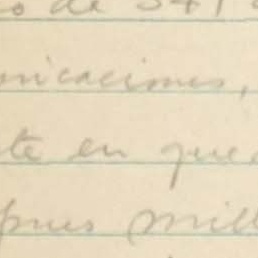 o de 541
nicaciones,
te en que
pues mill